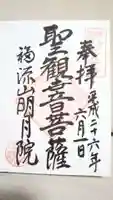 奉拝
平成二十六年
六月一日
聖観音菩薩
福源山明月院